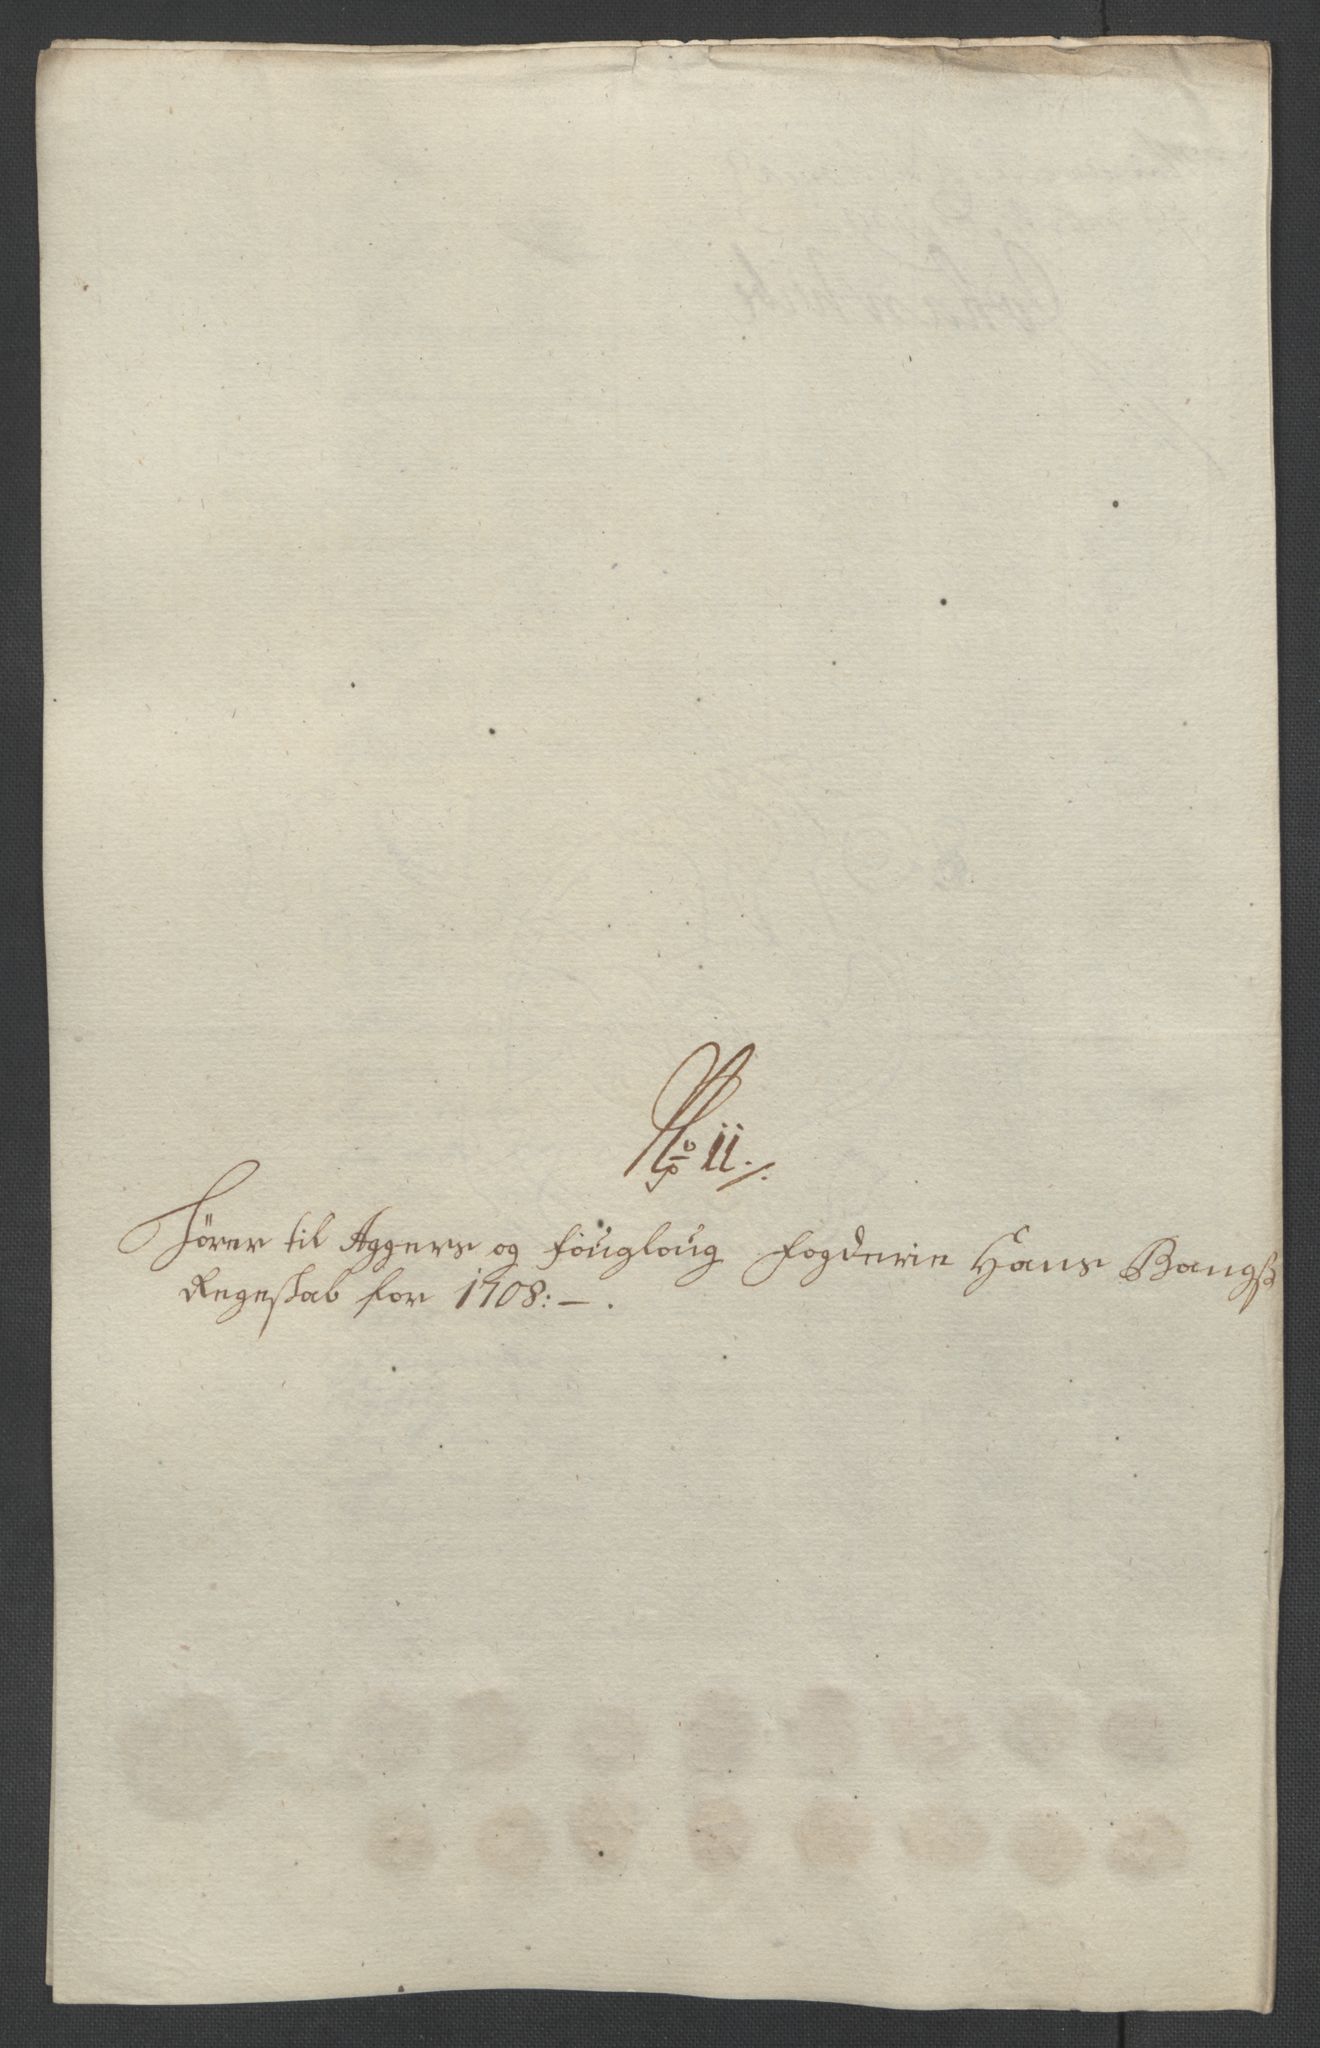 No 11./.
Hörer til Aggers og Fougloug Fogderie Hans Bangs
Regeskab for 1708:—.